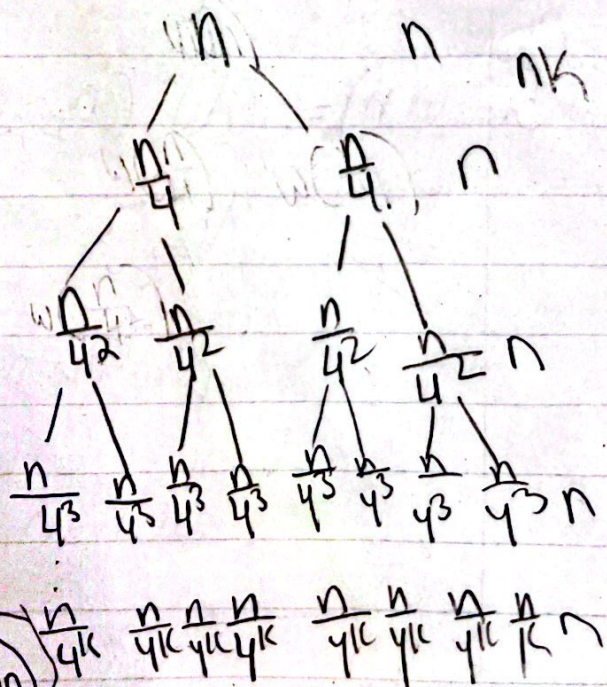 n n nk
n/4 n/4 n
n/4² n/4² n/4² n/4² n
n/4³ n/4³ n/4³ n/4³ n/4³ n/4³ n/4³ n/4³ n
n/4k n/4k n/4k n/4k n/4k n/4k n/4k n/k n